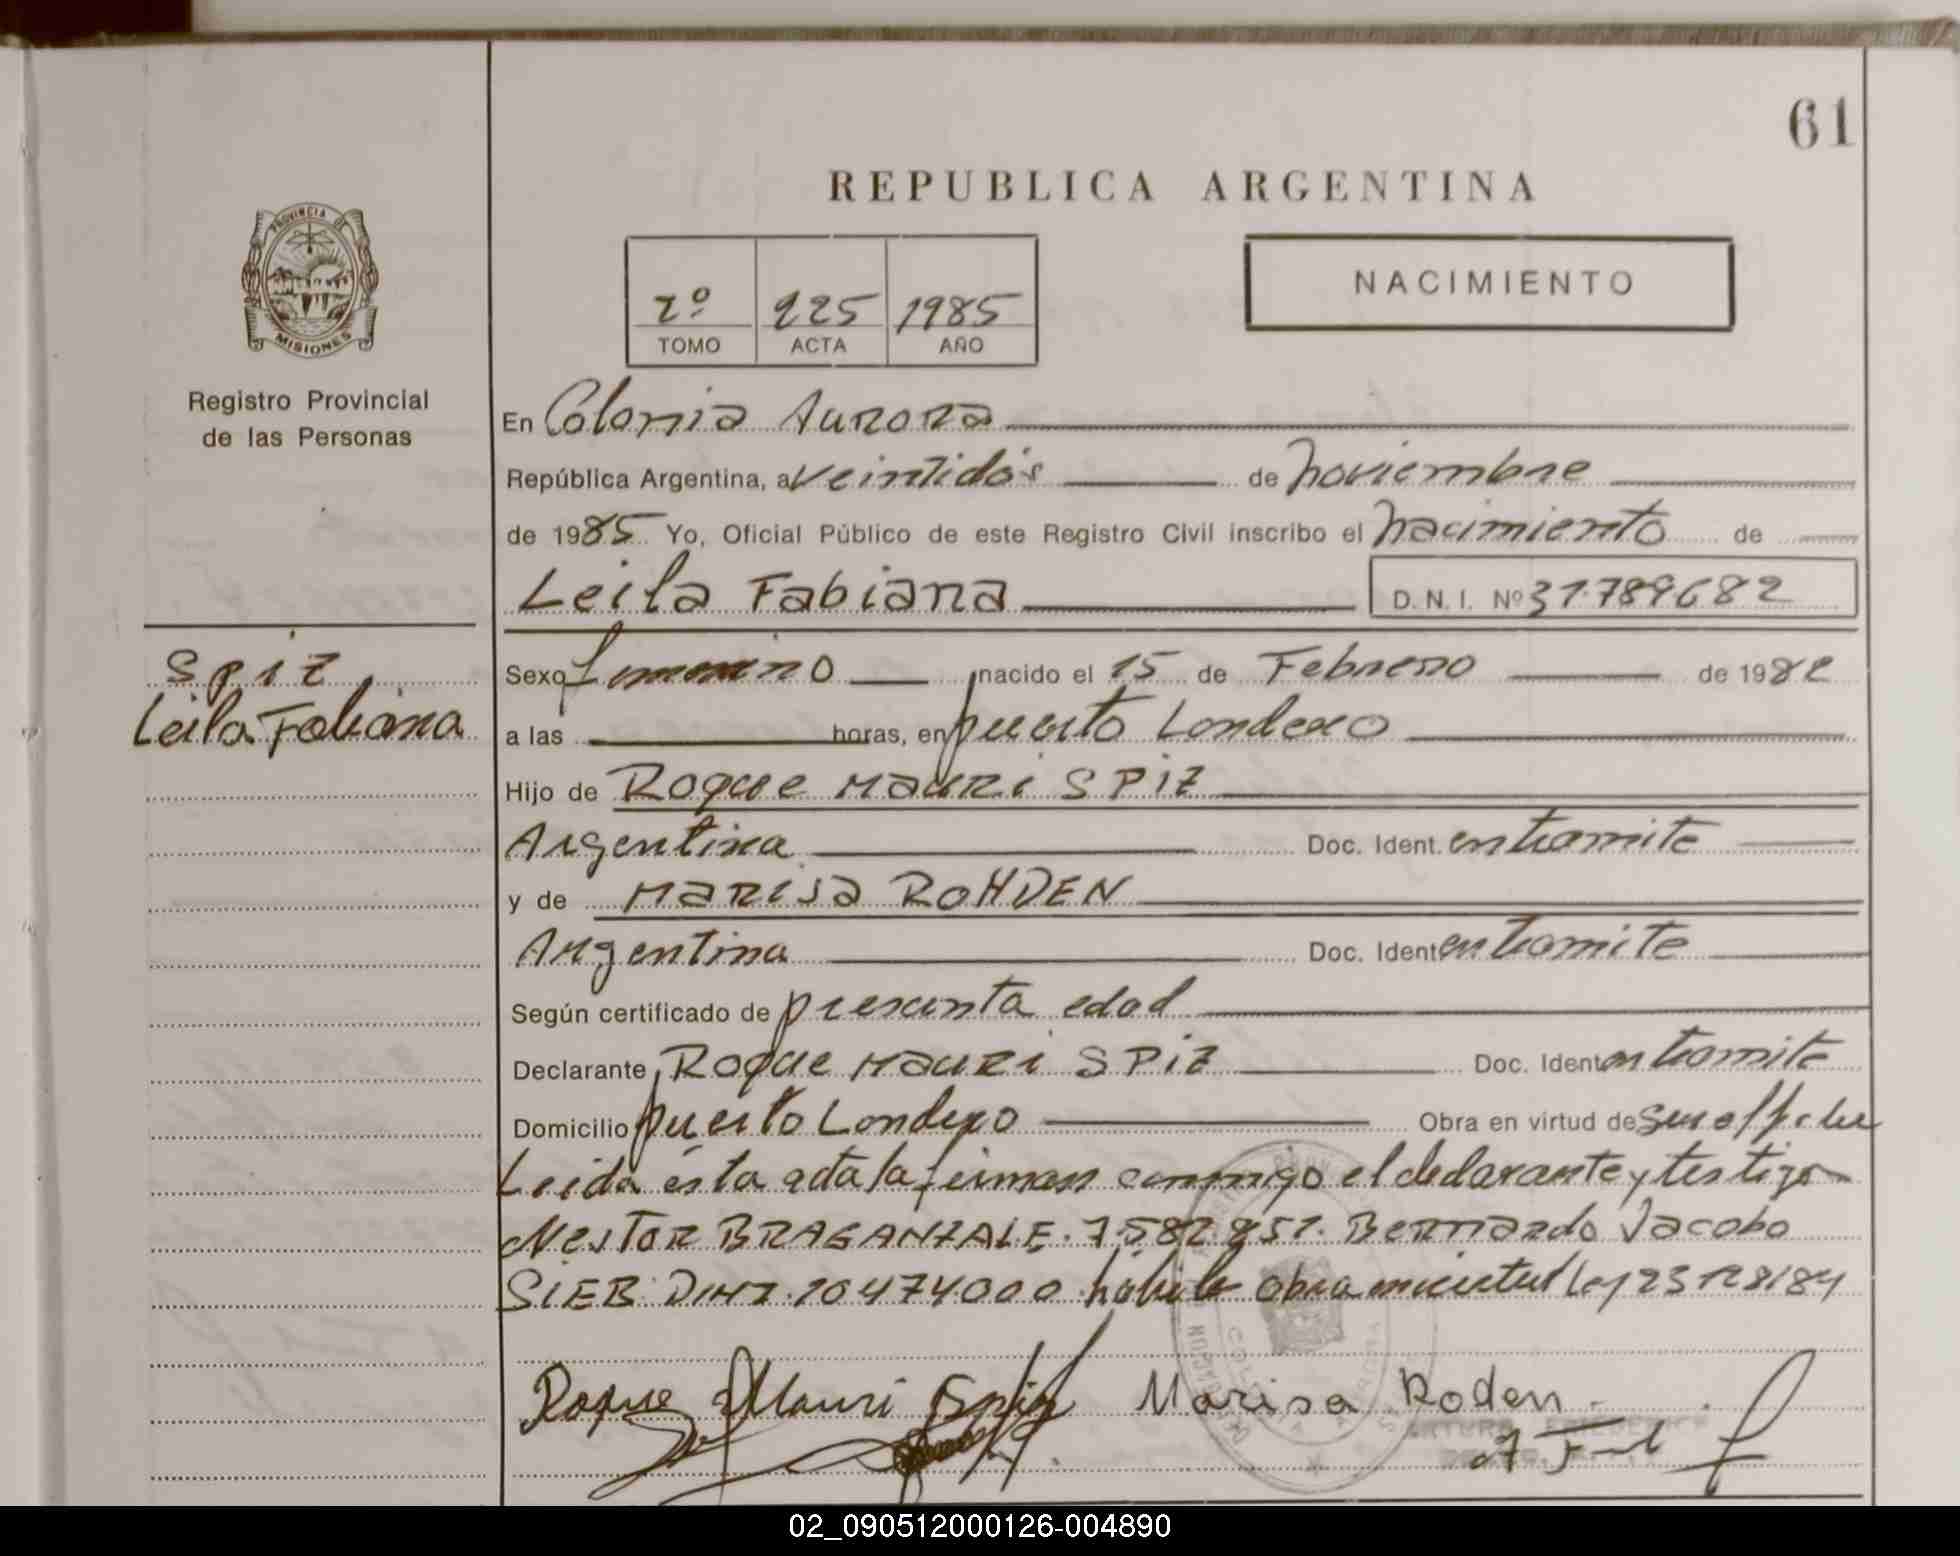 61
REPUBLICA ARGENTINA
PROVINCIA DE
MISIONES
Registro Provincial
de las Personas
2º 225 1985
TOMO ACTA AÑO
NACIMIENTO
En Colonia Aurora
República Argentina, a veintidós de noviembre
de 1985 Yo, Oficial Público de este Registro Civil inscribo el nacimiento de
Leila Fabiana D.N.I. Nº 31.789682
Spiz
Leila Fabiana
Sexo femenino nacido el 15 de Febrero de 1982
a las horas, en puerto Londero
Hijo de Roque Mauri SPIZ
Argentina Doc. Ident. en tramite
y de Marisa ROHDEN
Argentina Doc. Ident en tramite
Según certificado de presunta edad
Declarante, Roque Mauri SPIZ Doc. Ident en tramite
Domicilio puerto Londero Obra en virtud de
Leida esta acta la firman conmigo el declarante y testigos
Nestor BRAGANZALE. 7.582.851. Bernardo Jacobo
SIEB DNI. 10474000 obra ley 23128/84
Roque Mauri Spiz Marisa Roden
02_090512000126-004890